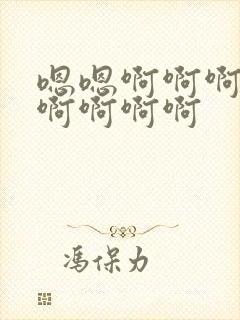 嗯嗯啊啊啊
啊啊啊啊
冯保力